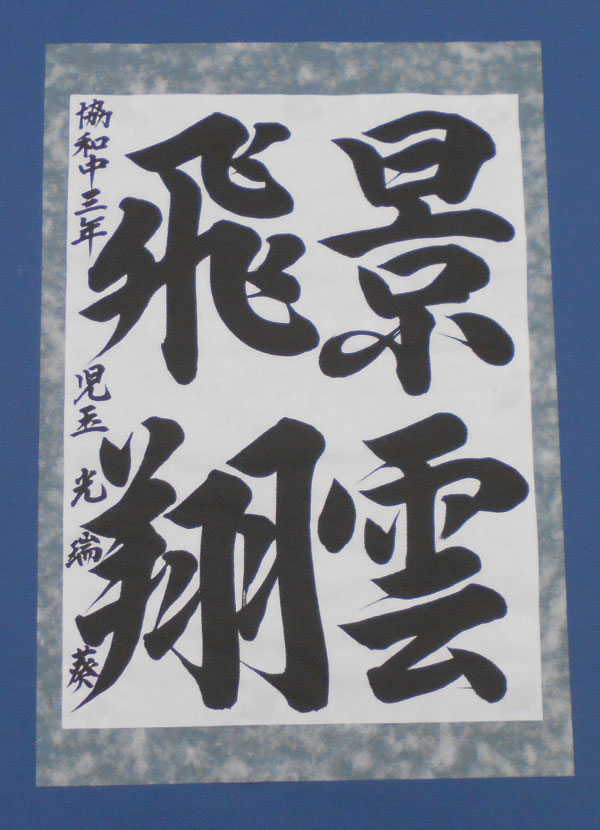 景雲
飛翔
協和中三年 児玉 光瑞 葵